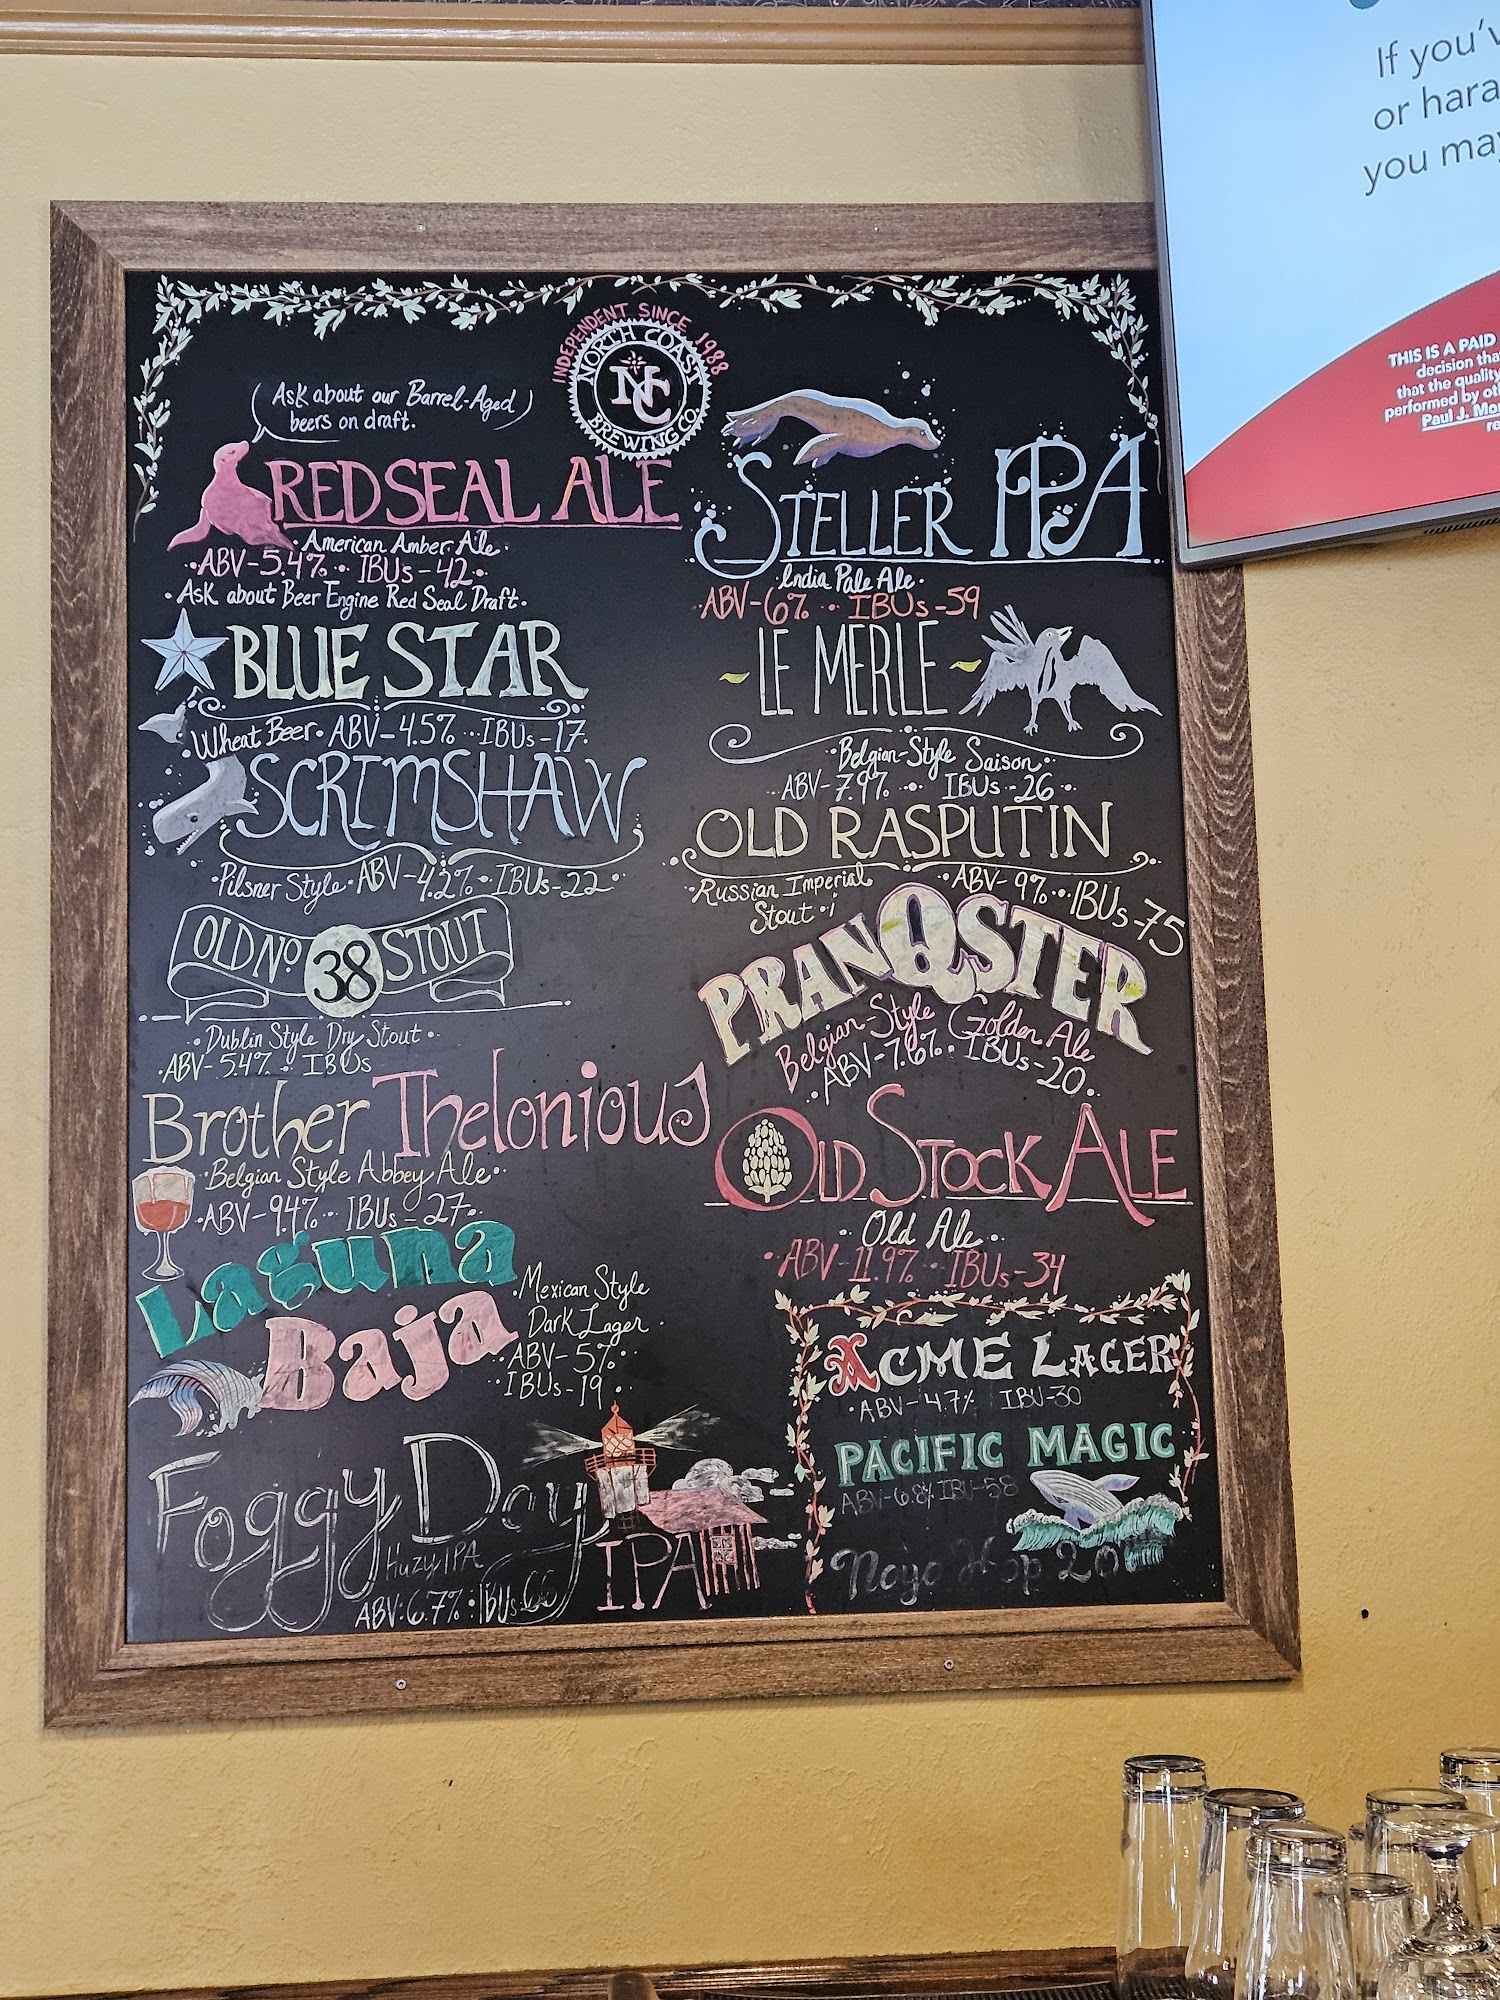 INDEPENDENT SINCE 1988
NORTH COAST
NC
BREWING CO.
Ask about our Barrel-Aged
beers on draft.
RED SEAL ALE
American Amber Ale
ABV-5.4% IBUs-42
Ask about Beer Engine Red Seal Draft.
BLUE STAR
Wheat Beer ABV-4.5% IBUs-17
SCRIMSHAW
Pilsner Style ABV-4.2% IBUs-22
OLD No 38 STOUT
Dublin Style Dry Stout
ABV-5.4% IBUs
Brother Thelonious
Belgian Style Abbey Ale
ABV-9.4% IBUs-27
Laguna
Baja
Mexican Style
Dark Lager
ABV-5%
IBUs-19
Foggy Day IPA
IPA
ABV:6.7% IBUs
STELLER IPA
India Pale Ale
ABV-6% IBUs-59
LE MERLE
Belgian-Style Saison
ABV-7.9% IBUs-26
OLD RASPUTIN
Russian Imperial
Stout
ABV-9% IBUs-75
PRANQSTER
Belgian-Style Golden Ale
ABV-7.6% IBUs-20
OLD STOCK ALE
Old Ale
ABV-11.9% IBUs-34
ACME LAGER
ABV-4.7% IBU-30
PACIFIC MAGIC
ABV-6.8% IBU-58
Noyo Hop 20
If you'v
or hara
you may
THIS IS A PAID
decision tha
that the quality
performed by ot
Paul J. Mo
re